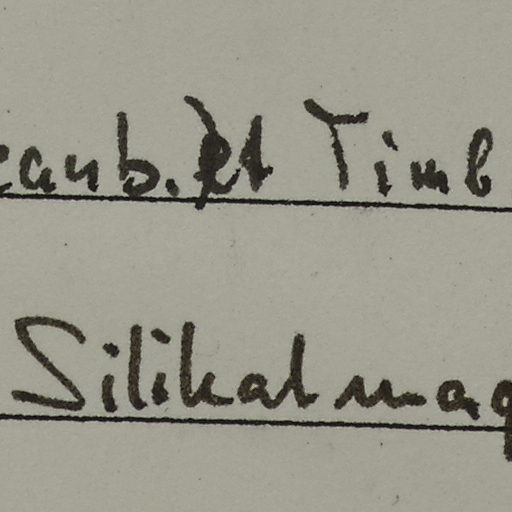 eanb. et Timb
Silikatmag